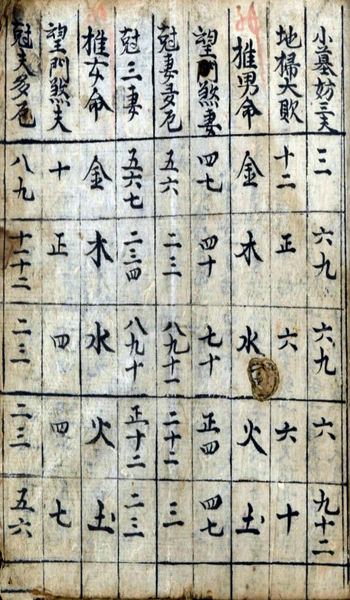 小墓妨三夫 三 六九 六九 六 九十二
地掃大敗 十二 正 六 六 十
推男命 金 木 水 火 土
望門煞妻 四七 四十 七十 正四 四七
尅妻多厄 五六 二三 八九十一 二十二 三
尅三妻 五六七 二三四 八九十 正十二 二三
推女命 金 木 水 火 土
望門煞夫 十 正 四 四 七
尅夫多厄 八九 十十二 二三 二三 五六